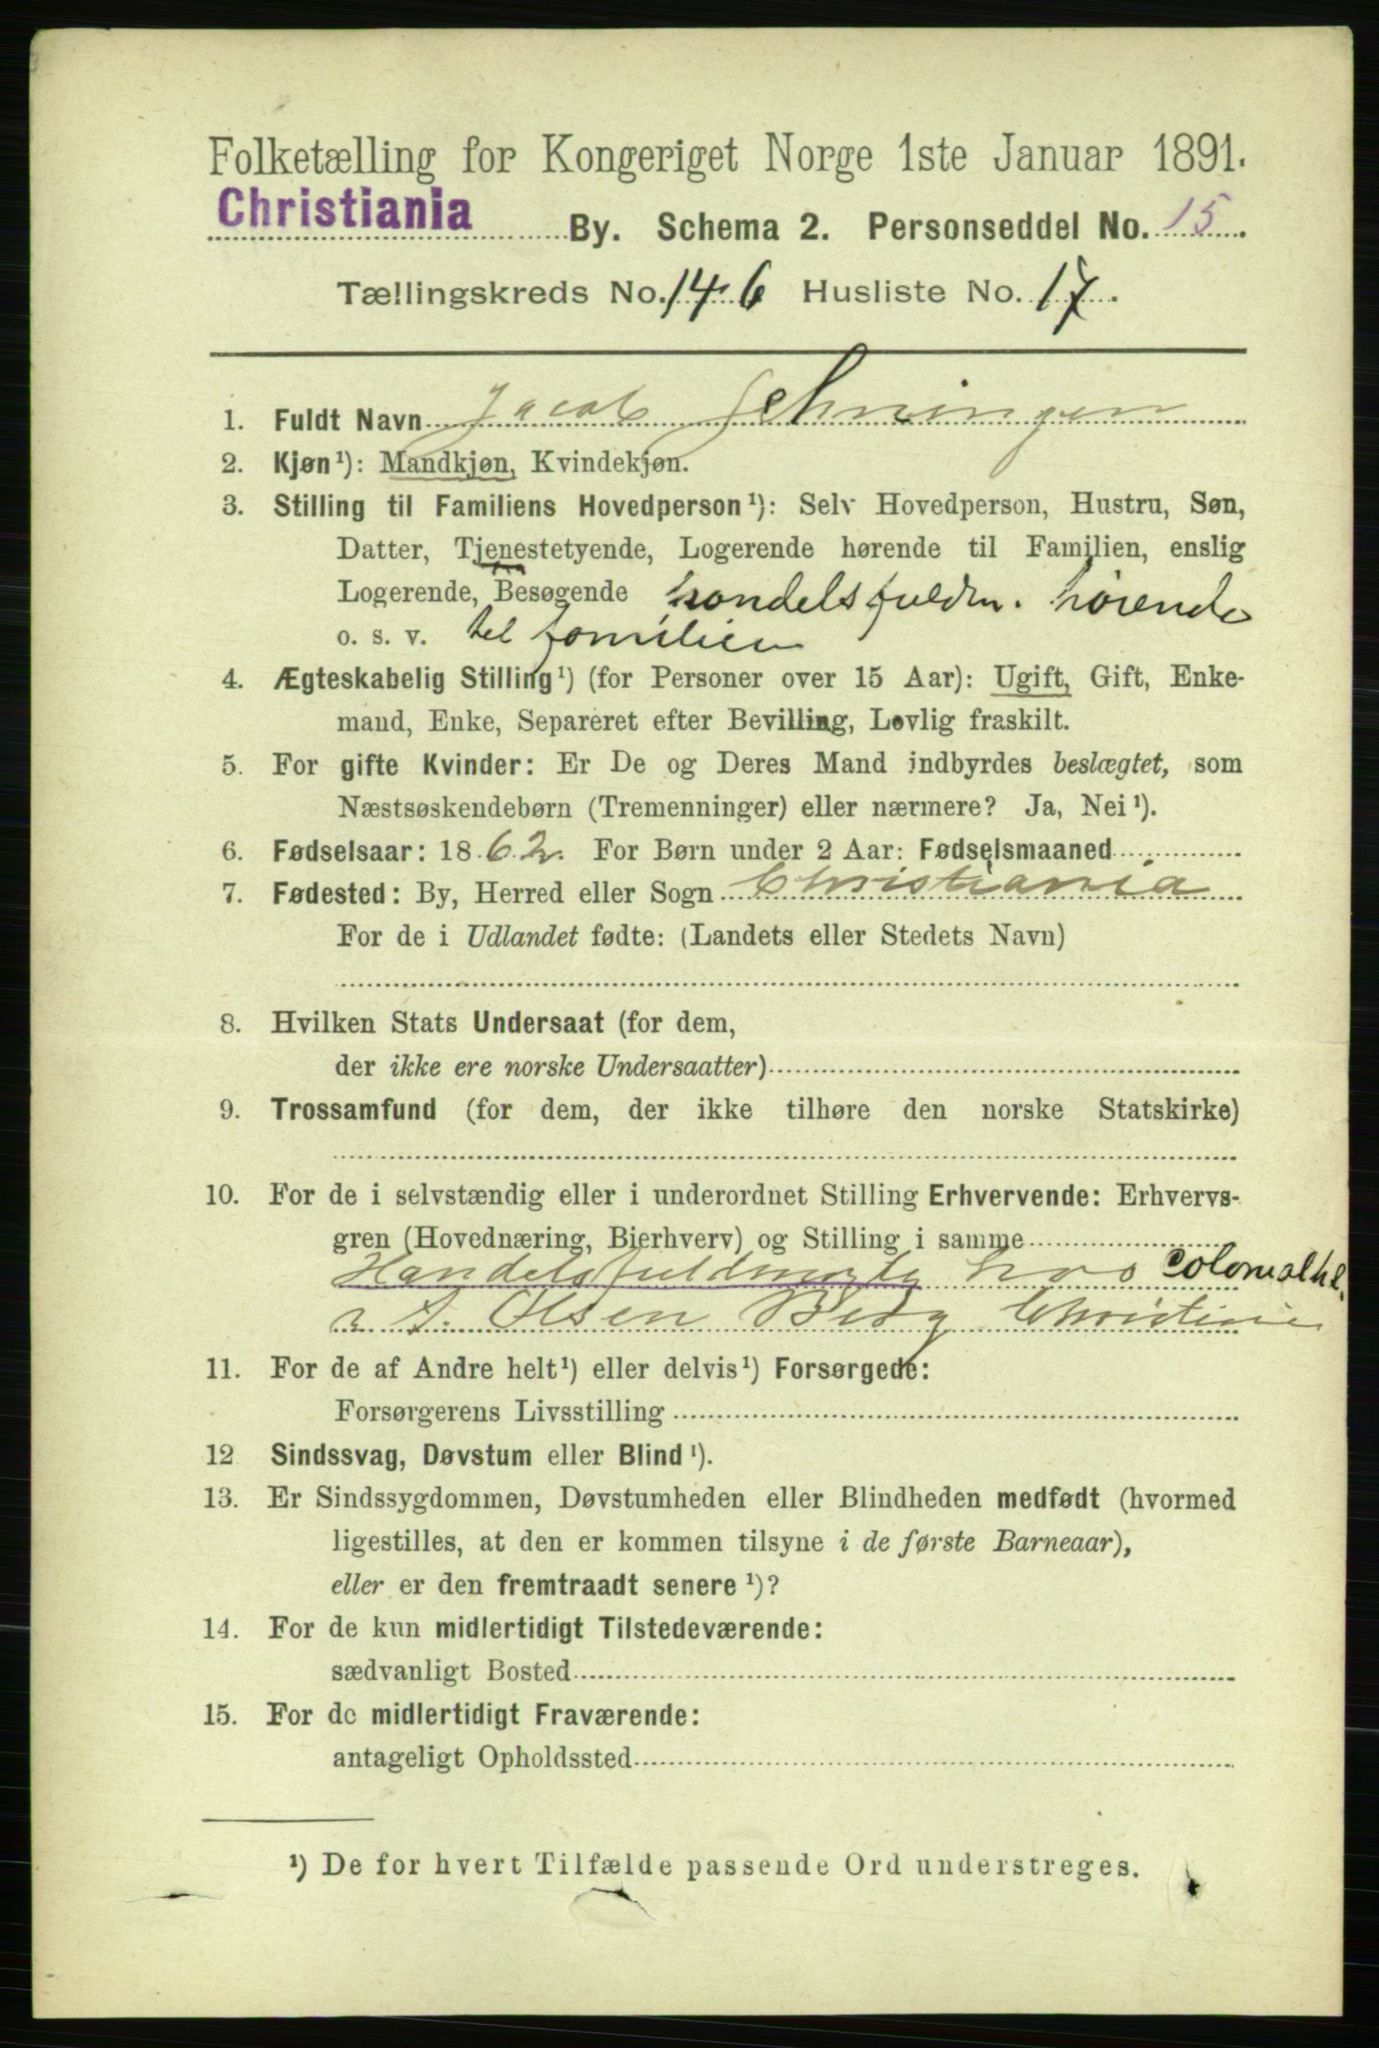 Folketælling for Kongeriget Norge 1ste Januar 1891.
Christiania By. Schema 2. Personseddel No. 15.
Tællingskreds No. 146 Husliste No. 17.
1. Fuldt Navn Jacob
2. Kjøn ¹): Mandkjøn, Kvindekjøn.
3. Stilling til Familiens Hovedperson ¹): Selv Hovedperson, Hustru, Søn,
Datter, Tjenestetyende, Logerende hørende til Familien, enslig
Logerende, Besøgende handelsfuldm. hørende
o. s. v. til familien
4. Ægteskabelig Stilling ¹) (for Personer over 15 Aar): Ugift, Gift, Enke-
mand, Enke, Separeret efter Bevilling, Lovlig fraskilt.
5. For gifte Kvinder: Er De og Deres Mand indbyrdes beslægtet, som
Næstsøskendebørn (Tremenninger) eller nærmere? Ja, Nei ¹).
6. Fødselsaar: 1862. For Børn under 2 Aar: Fødselsmaaned
7. Fødested: By, Herred eller Sogn Christiania
For de i Udlandet fødte: (Landets eller Stedets Navn)
8. Hvilken Stats Undersaat (for dem,
der ikke ere norske Undersaatter)
9. Trossamfund (for dem, der ikke tilhøre den norske Statskirke)
10. For de i selvstændig eller i underordnet Stilling Erhvervende: Erhvervs-
gren (Hovednæring, Bierhverv) og Stilling i samme
Handelsfuldmægtig hos Colonialhl.
Olsen Berg
11. For de af Andre helt ¹) eller delvis ¹) Forsørgede:
Forsørgerens Livsstilling
12 Sindssvag, Døvstum eller Blind ¹).
13. Er Sindssygdommen, Døvstumheden eller Blindheden medfødt (hvormed
ligestilles, at den er kommen tilsyne i de første Barneaar),
eller er den fremtraadt senere ¹)?
14. For de kun midlertidigt Tilstedeværende:
sædvanligt Bosted
15. For de midlertidigt Fraværende:
antageligt Opholdssted
¹) De for hvert Tilfælde passende Ord understreges.